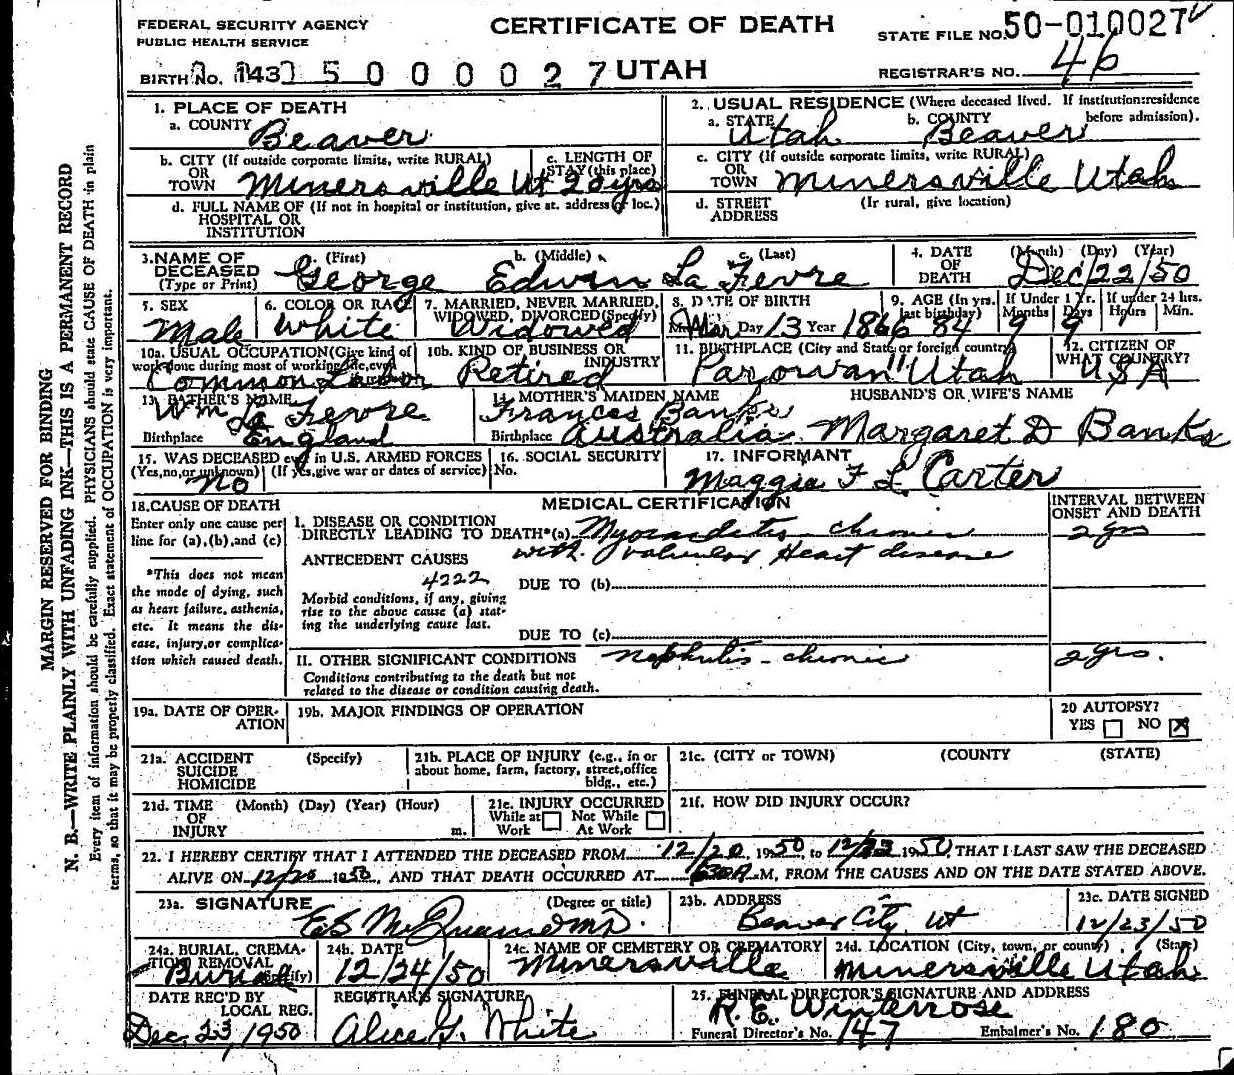 FEDERAL SECURITY AGENCY
PUBLIC HEALTH SERVICE
CERTIFICATE OF DEATH
STATE FILE NO. 50-010027
BIRTH NO. 143 5 0 0 0 0 2 7 UTAH
REGISTRAR'S NO. 46
MARGIN RESERVED FOR BINDING
N. B.—WRITE PLAINLY WITH UNFADING INK—THIS IS A PERMANENT RECORD
Every item of information should be carefully supplied. PHYSICIANS should state CAUSE OF DEATH in plain
terms, so that it may be properly classified. Exact statement of OCCUPATION is very important.
1. PLACE OF DEATH
a. COUNTY Beaver
2. USUAL RESIDENCE (Where deceased lived. If institution: residence before admission).
a. STATE Utah b. COUNTY Beaver
b. CITY (If outside corporate limits, write RURAL) OR TOWN Minersville Ut
c. LENGTH OF STAY (this place) 20 yrs
c. CITY (If outside corporate limits, write RURAL) OR TOWN Minersville Utah
d. FULL NAME OF (If not in hospital or institution, give st. address or loc.) HOSPITAL OR INSTITUTION
d. STREET ADDRESS (If rural, give location)
3. NAME OF DECEASED (Type or Print) a. (First) George b. (Middle) Edwin c. (Last) La Fevre
4. DATE OF DEATH (Month) (Day) (Year) Dec/22/50
5. SEX Male
6. COLOR OR RACE White
7. MARRIED, NEVER MARRIED, WIDOWED, DIVORCED (Specify) Widowed
8. DATE OF BIRTH Mar Day 13 Year 1866
9. AGE (In yrs. last birthday) 84 If Under 1 Yr. Months 9 Days 9 If under 24 hrs. Hours Min.
10a. USUAL OCCUPATION (Give kind of work done during most of working life, even Common Labor
10b. KIND OF BUSINESS OR INDUSTRY Retired
11. BIRTHPLACE (City and State or foreign country) Parowan Utah
12. CITIZEN OF WHAT COUNTRY? USA
13. FATHER'S NAME Wm La Fevre
Birthplace England
14. MOTHER'S MAIDEN NAME Frances Banks
Birthplace Australia
HUSBAND'S OR WIFE'S NAME Margaret D Banks
15. WAS DECEASED ever in U.S. ARMED FORCES (Yes, no, or unknown) (If yes, give war or dates of service) No
16. SOCIAL SECURITY No.
17. INFORMANT Maggie F L Carter
18. CAUSE OF DEATH
Enter only one cause per line for (a), (b), and (c)
*This does not mean the mode of dying, such as heart failure, asthenia, etc. It means the disease, injury, or complication which caused death.
MEDICAL CERTIFICATION
INTERVAL BETWEEN ONSET AND DEATH
I. DISEASE OR CONDITION DIRECTLY LEADING TO DEATH* (a) Myocarditis chronic 2 yrs
with valvular Heart disease
ANTECEDENT CAUSES
4222
DUE TO (b)
Morbid conditions, if any, giving rise to the above cause (a) stating the underlying cause last.
DUE TO (c)
II. OTHER SIGNIFICANT CONDITIONS Nephritis - chronic 2 yrs.
Conditions contributing to the death but not related to the disease or condition causing death.
19a. DATE OF OPERATION
19b. MAJOR FINDINGS OF OPERATION
20 AUTOPSY? YES NO X
21a. ACCIDENT SUICIDE HOMICIDE (Specify)
21b. PLACE OF INJURY (e.g., in or about home, farm, factory, street, office bldg., etc.)
21c. (CITY or TOWN) (COUNTY) (STATE)
21d. TIME OF INJURY (Month) (Day) (Year) (Hour) m.
21e. INJURY OCCURRED While at Work Not While At Work
21f. HOW DID INJURY OCCUR?
22. I HEREBY CERTIFY THAT I ATTENDED THE DECEASED FROM 12/20, 1950, to 12/23 1950, THAT I LAST SAW THE DECEASED
ALIVE ON 12/20 1950, AND THAT DEATH OCCURRED AT 630A M, FROM THE CAUSES AND ON THE DATE STATED ABOVE.
23a. SIGNATURE (Degree or title) MD.
23b. ADDRESS Beaver City, Ut
23c. DATE SIGNED 12/23/50
24a. BURIAL, CREMATION, REMOVAL (Specify) Burial
24b. DATE 12/24/50
24c. NAME OF CEMETERY OR CREMATORY Minersville
24d. LOCATION (City, town, or county) (State) Minersville Utah
DATE REC'D BY LOCAL REG. Dec. 23, 1950
REGISTRAR'S SIGNATURE Alice G. White
25. FUNERAL DIRECTOR'S SIGNATURE AND ADDRESS R.E. Winterrose
Funeral Director's No. 147 Embalmer's No. 180